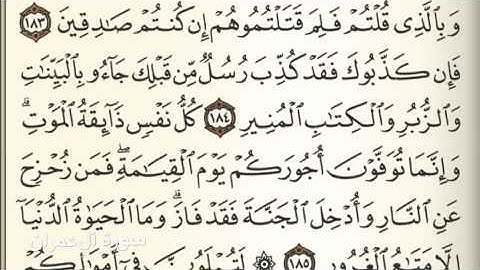 وَبِٱلَّذِى قُلْتُمْ فَلِمَ قَتَلْتُمُوهُمْ إِن كُنتُمْ صَٰدِقِينَ ١٨٣
فَإِن كَذَّبُوكَ فَقَدْ كُذِّبَ رُسُلٌ مِّن قَبْلِكَ جَآءُو بِٱلْبَيِّنَٰتِ
وَٱلزُّبُرِ وَٱلْكِتَٰبِ ٱلْمُنِيرِ ١٨٤ كُلُّ نَفْسٍ ذَآئِقَةُ ٱلْمَوْتِۗ
وَإِنَّمَا تُوَفَّوْنَ أُجُورَكُمْ يَوْمَ ٱلْقِيَٰمَةِۖ فَمَن زُحْزِحَ
عَنِ ٱلنَّارِ وَأُدْخِلَ ٱلْجَنَّةَ فَقَدْ فَازَۗ وَمَا ٱلْحَيَوٰةُ ٱلدُّنْيَآ
سورة آل عمران
إِلَّا مَتَٰعُ ٱلْغُرُورِ ١٨٥ ۞ لَتُبْلَوُنَّ فِىٓ أَمْوَٰلِكُمْ